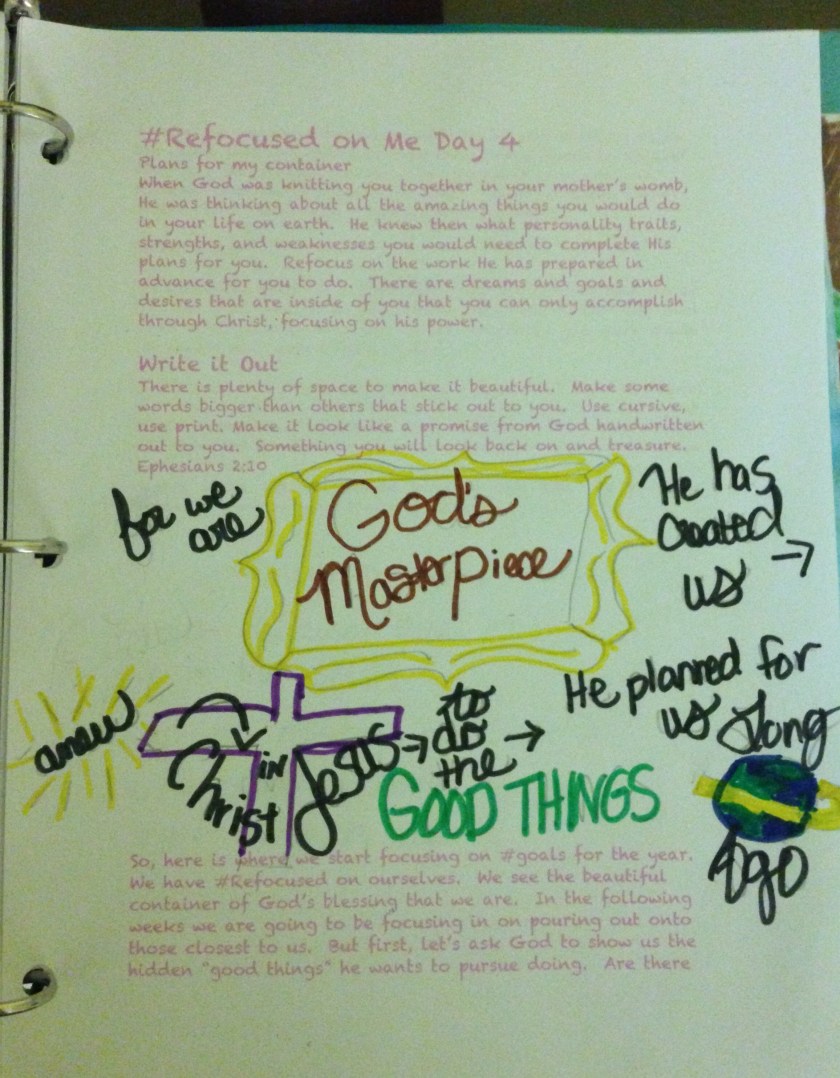 #Refocused on Me Day 4
Plans for my container
When God was knitting you together in your mother's womb,
He was thinking about all the amazing things you would do
in your life on earth. He knew then what personality traits,
strengths, and weaknesses you would need to complete His
plans for you. Refocus on the work He has prepared in
advance for you to do. There are dreams and goals and
desires that are inside of you that you can only accomplish
through Christ, focusing on his power.
Write it Out
There is plenty of space to make it beautiful. Make some
words bigger than others that stick out to you. Use cursive,
use print. Make it look like a promise from God handwritten
out to you. Something you will look back on and treasure.
Ephesians 2:10
for we
are
God's
Masterpiece
He has
created
us
anew
in
Christ
Jesus
to
do
the
GOOD THINGS
He planned for
us long
ago
So, here is where we start focusing on #goals for the year.
We have #Refocused on ourselves. We see the beautiful
container of God's blessing that we are. In the following
weeks we are going to be focusing in on pouring out onto
those closest to us. But first, let's ask God to show us the
hidden "good things" he wants to pursue doing. Are there